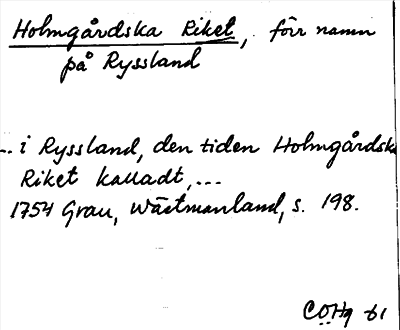 Holmgårdska Riket, förr namn
på Ryssland
... i Ryssland, den tiden Holmgårdska
Riket kalladt, ...
1754 Grau, Wästmanland, s. 198.
CÖHg 61